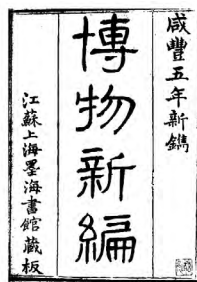 咸豐五年新鐫
博物新編
江蘇上海墨海書館藏板